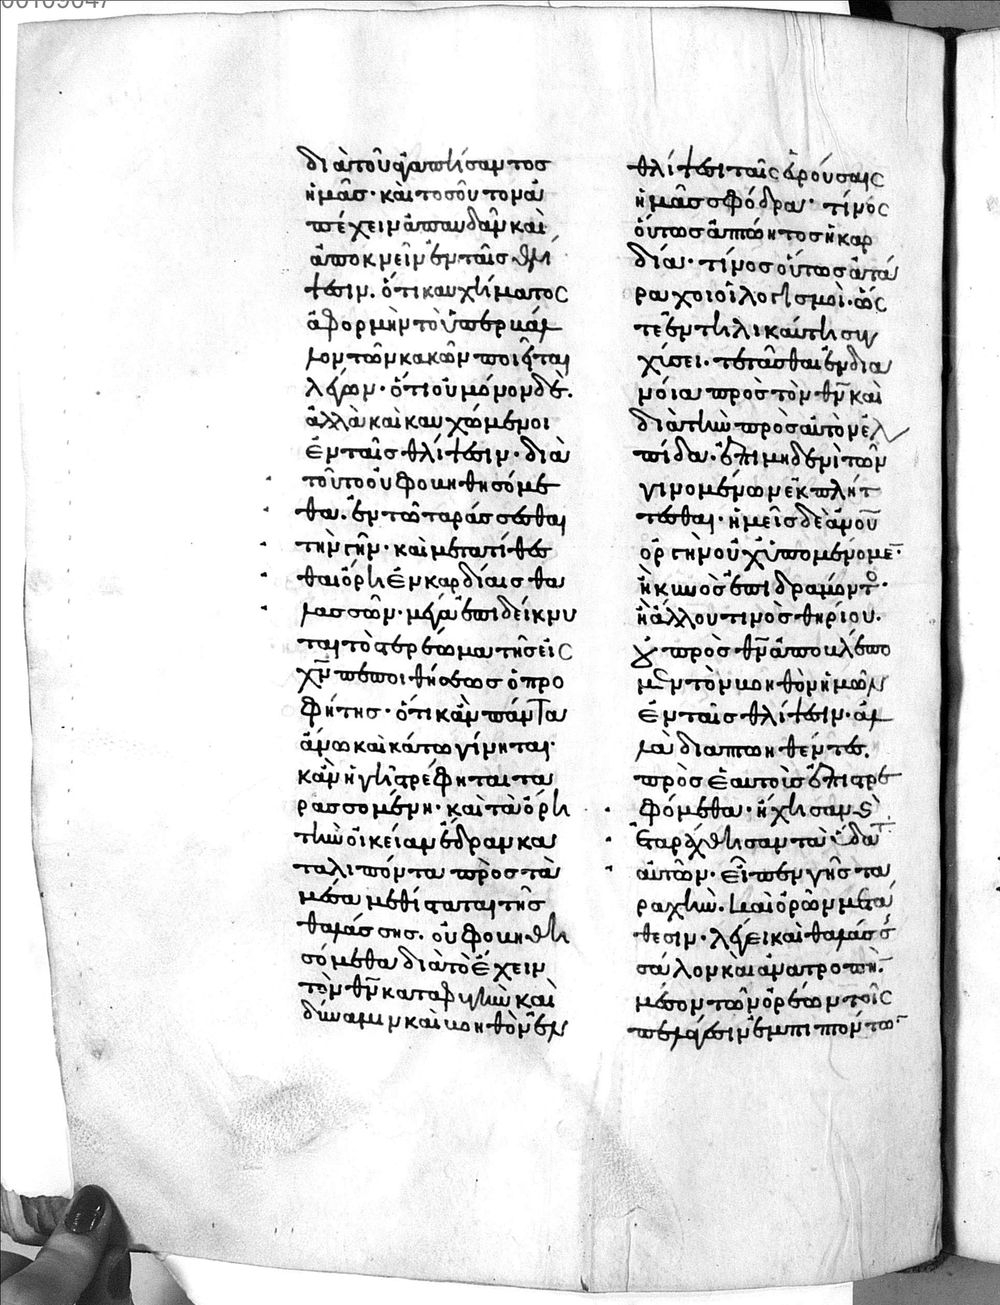 διὰ τοῦ ἀγαπήσαντος
ἡμᾶς· καὶ τοσοῦτον ἀ
πέχειν ἀπαυδᾶν καὶ
ἀποκνεῖν ἐν ταῖς θλί
ψεσιν. ὅτι καυχήματος
ἀφορμὴν τὸ ὑπερβάλ
λον τῶν κακῶν ποιεῖται
λέγων· ὅτι οὐ μόνον δὲ.
ἀλλὰ καὶ καυχώμενοι
ἐν ταῖς θλίψεσιν· διὰ
τοῦτο οὐ φοβηθησόμε
θα. ἐν τῶ ταράσσεσθαι
τὴν γῆν· καὶ μετατίθεσ
θαι ὄρη ἐν καρδίαις θα
λασσῶν· μέγα ἐπιδείκνυ
ται τὸ στερέωμα τῆς εἰς
χν̄ πεποιθήσεως ὁ προ
φήτης· ὅτι κἂν πάντα
ἄνω καὶ κάτω γίνηται·
κἂν ἡ γῆ στρέφηται τα
ρασσομένη· καὶ τὰ ὄρη
τὴν οἰκείαν ἕδραν κα
ταλιπόντα πρὸς τὰ
μέσα μεθίσταται τῆς
θαλάσσης. οὐ φοβηθη
σόμεθα διὰ τὸ ἔχειν
τὸν θν̄ καταφυγὴν καὶ
δύναμιν καὶ βοηθὸν ἐν
θλίψεσι ταῖς εὑρούσαις
ἡμᾶς σφόδρα· τίνος
οὕτως ἀπτόητος ἡ καρ
δία· τίνος οὕτως ἀτά
ραχοι οἱ λογισμοὶ· ὥς
τε ἐν τηλικαύτη συγ
χύσει. τετᾶσθαι ἐν δια
νοία πρὸς τὸν θν̄ καὶ
διὰ τὴν πρὸς αὐτὸν ἐλ
πίδα· ἐπὶ μηδενὶ τῶν
γινομένων ἐκπλήτ
τεσθαι· ἡμεῖς δὲ ἀνο̄υ
ὀργὴν οὐχ ὑπομένομε̄·
ἢ κυνὸς ἐπιδραμόντο·
ἢ ἄλλου τινὸς θηρίου.
οὐ πρὸς θν̄ ἀποβλέπο
μεν τὸν βοηθὸν ἡμῶν
ἐν ταῖς θλίψεσιν· ἀλ
λὰ διαπτοηθέντες.
πρὸς ἑαυτοῖς ἐπιστρε
φόμεθα· ἤχησαν κ̀
ἐταράχθησαν τὰ ὕδατ
αὐτῶν· εἶπεν γῆς τα
ραχὴν. καὶ ὀρῶν μετά
θεσιν· λέγει καὶ θαλάσς
σάλον καὶ ἀνατροπὴν·
μέσον τῶν ὀρέων τοῖς
πελάγεσιν ἐμπιπτόντω̄